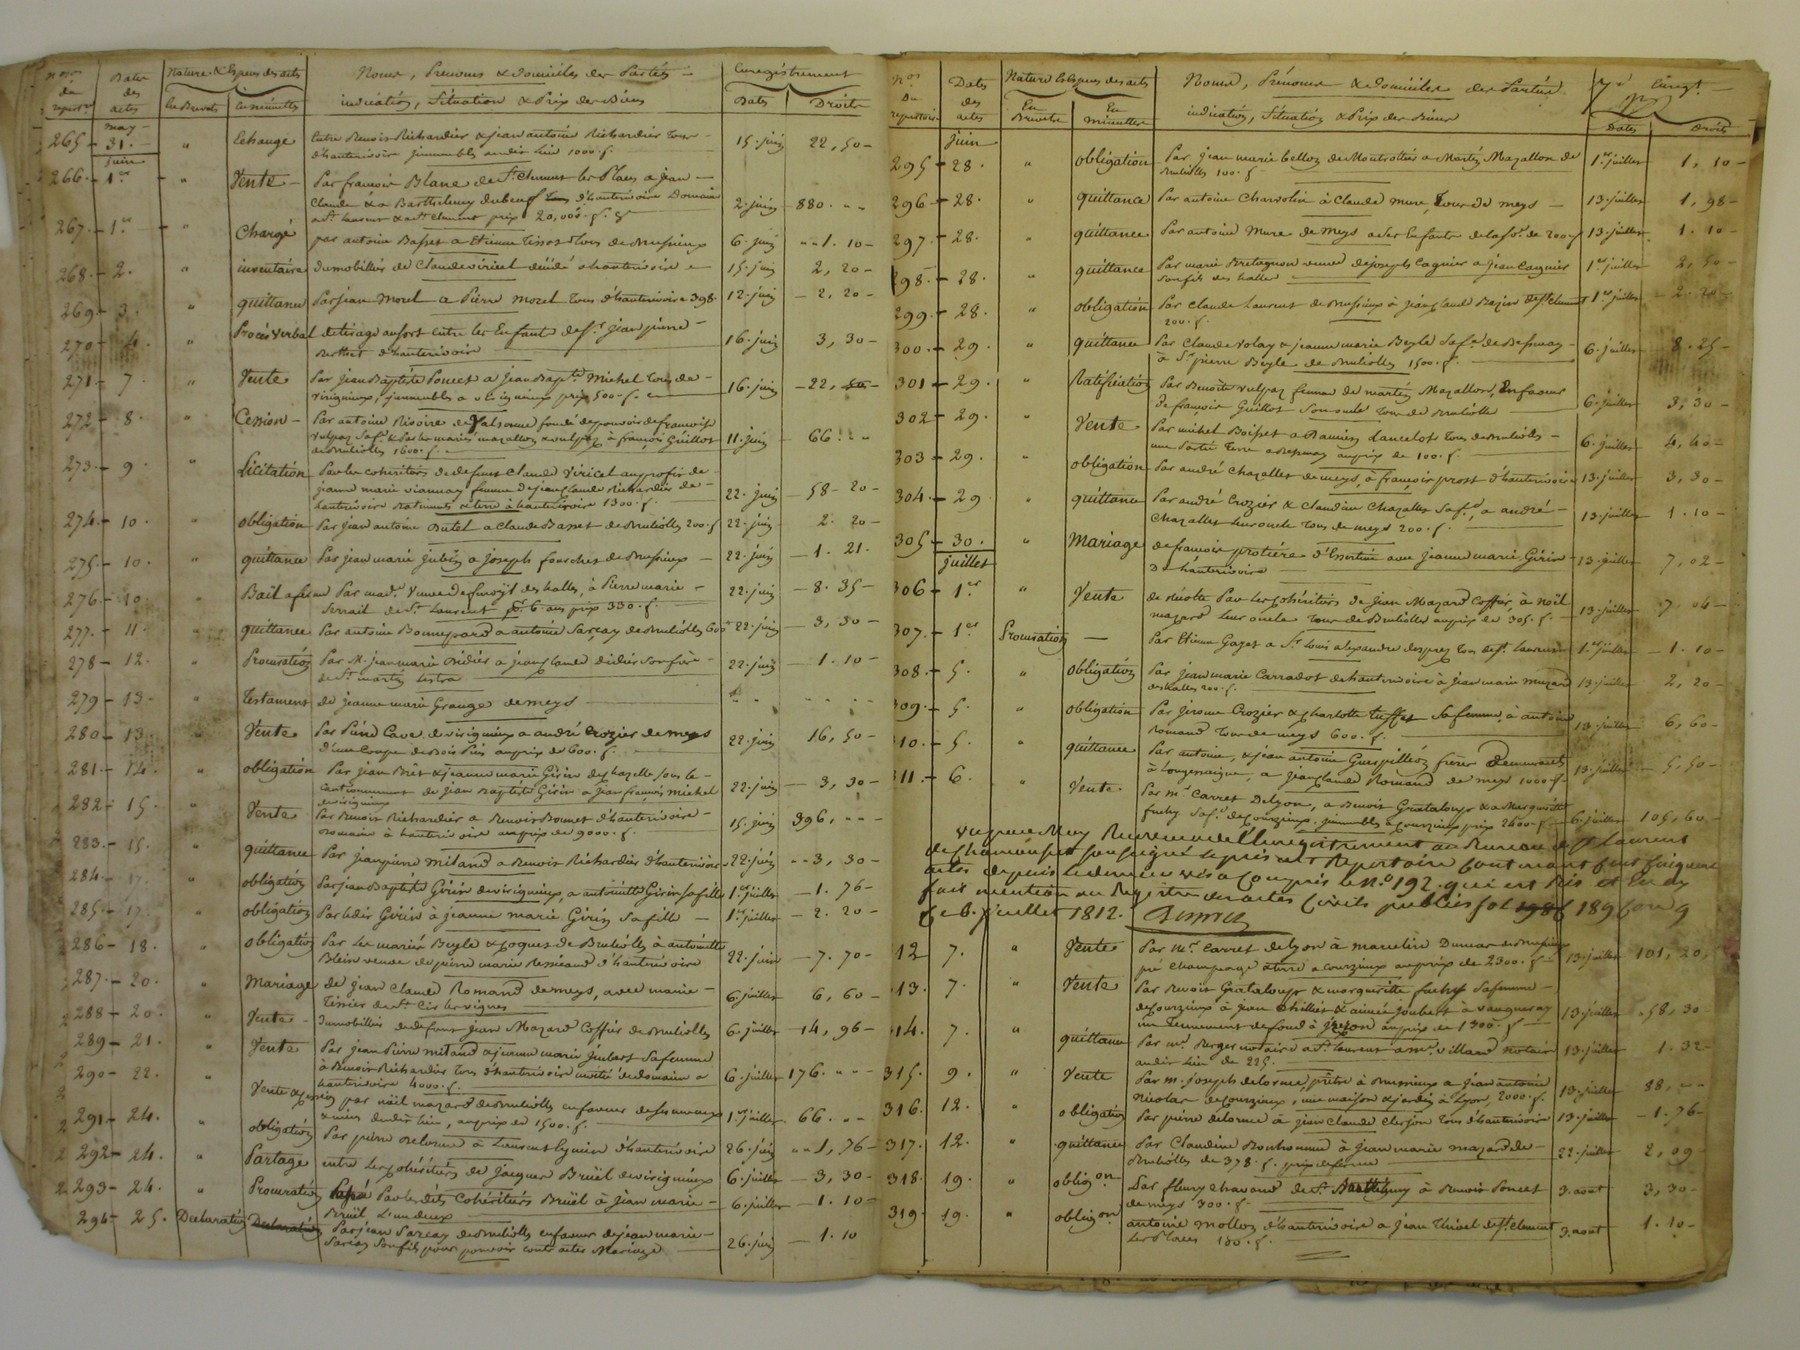 Nos du repertre | Dates des actes | Nature & Especes des acts | En Brevets | En minuttes | Noms, Prenoms & domiciles des Parties indication, Situation & Prix des Biens | Enregistrement | Dates | Droits
265 — may 31. " Echange Entre Benoit Richardier & jean antoine Richardier Tous d'hauterivoire 1000. f. 15. juin 22, 50
juin
266. 1er " Vente Par françois Blanc de St Clement les Places a jean
Claude & a Barthelemy dubeuf d'hauterivoire Domaine
a St laurent & a St Clement prix 20,000. f. 2. juin 880. " "
267. 1er " Charge par antoine Basset a Etienne Tous de Brussieux 6. juin " " 1. 10
268. 2. " inventaire du mobillier de Claude viricel décédé a hauterivoire 15. juin 2, 20
269. 3. " quittance Par jean Morel a Pierre Morel Tous d'hauterivoire 398. 12. juin 2, 20
270. 4. " Procès Verbal de tirage au sort entre les Enfants de ft jean pierre
d'hauterivoire 16. juin 3, 30
271. 7. " Vente Par Jean Baptiste Poncet a Jean Bapte Michel Tous de
virigneux, jmmeubles a virigneux prix 500. f. 16. juin 22,
272. 8. " Cession Par antoine de Valsonne fondé de pouvoir de françoise
vulpaz & mazallon a françois Guillot
de Brulliolles 1600. f. 11. juin 66. " "
273. 9. " Licitation Par les coheritiers de defunt Claude Viricel au profit de
jeanne marie viannay femme de jean Claude Richardier de
hauterivoire & terre a hauterivoire 1300. f. 22. juin 58. 20
274. 10. " obligation Par Jean antoine Butel a Claude Basset de Brulliolles 200. f. 22. juin 2. 20
275. 10. " quittance Par jean marie jubin a joseph de Brussieux 22. juin 1. 21.
276. 10. " Bail a ferme Par made veuve des halles, à Pierre marie
de St Laurent pr 6 ans prix 330. f. 22. juin 8. 35
277. 11. " quittance Par antoine Bonnepard a antoine Sarçay de Brulliolles 600 22. juin 3, 30
278. 12. " Procuration Par M. jean marie Didier a jean Claude didier son frère
de St martin lestra 22. juin 1. 10
279. 13. " Testament de jeanne marie Grange de meys
280. 13. " Vente Par Cave de virigneux a andré Crozier de meys
d'une Coupe de Bois Pins au prix de 600. f. 22. juin 16, 50
281. 14. " obligation Par jean & jeanne marie Girin de chazelle sous le
Cautionnement de Jean Baptiste Girin a jean françois Michel
de virigneux 22. juin 3, 30
282. 15. " Vente Par Benoit Richardier a Benoit Bonnet d'hauterivoire
Domaine à hauterivoire au prix de 9000. f. 15. juin 396, " "
283. 15. " quittance Par jean pierre Miland a Benoit Richardier d'hauterivoire 22. juin " " 3, 30
284. 17. " obligation Par jean Baptiste Girin de virigneux, a antoinette Girin sa fille 1er juillet 1. 76
285. 17. " obligation Par ledit Girin à jeanne marie Girin sa fille 1er juillet 2. 20
286. 18. " obligation Par les mariés Beyle & Coquet de Brulliolles à antoinette
Blein veuve de pierre marie d'hauterivoire 22. juin 7. 70
287. 20. " Mariage de jean Claude Romand de meys, avec marie
Tissier de St Cir les vignes 6. juillet 6, 60
288. 20. " Vente du mobillier de defunt jean Mazard Coffier de Brulliolles 6. juillet 14, 96
289. 21. " Vente Par jean Pierre miland & jeanne marie jmbert sa femme
à Benoit Richardier Tous d'hauterivoire moitié de domaine a
hauterivoire 4000. f. 6. juillet 176. " "
290. 22. " Vente & Cession par noël mazard de Brulliolles en faveur de ses neveux
& nieces dudit lieu, au prix de 1500. f. 1er juillet 66. " "
291. 24. " obligation Par pierre Delorme à Laurent d'hauterivoire 26. juin " " 1, 76
292. 24. " Partage entre les cohéritiers de Jacques Bruël de virigneux 6. juillet 3, 30
293. 24. " Procuration Par lesdits Cohéritiers Bruël à jean marie
Bruël l'un deux 6. juillet 1. 10
294. 25. Déclaration Par jean Sarcay de Brulliolles en faveur de jean marie
Sarcay son fils pour pouvoir contracter Mariage 26. juin 1. 10
Nos du repertoire | Dates des actes | Nature & Especes des acts | En Brevets | En minuttes | Noms, Prénoms & domiciles des Parties indication, Situation & Prix des Biens | Enregt. | Dates | Droits
juin
295. 28. " obligation Par jean marie bellon de Montrottier a Martin Mazallon de
Brulliolles 100. f. 1er juillet 1, 10
296. 28. " quittance Par antoine Charvolin à Claude mure, Tous de meys 13. juillet 1, 98
297. 28. " quittance Par antoine Mure de Meys a des Enfants de 200. f. 13. juillet 1. 10
298. 28. " quittance Par marie Bretagnon veuve de joseph Cagnier a jean Cagnier
son fils des halles 1er juillet 2, 50
299. 28. " obligation Par Claude Laurent de Brussieux à jean Claude Bazin de St Clement
200. f. 1er juillet 2. 20
300. 29. " quittance Par Claude Volay & jeanne marie Beyle sa fe de Bessenay
à Sr pierre Beyle de Brulliolles 1500. f. 6. juillet 8. 25
301. 29. " Ratification Par Benoite vulpaz femme de martin Mazallon, En faveur
de françois Guillot son oncle Tous de Brulliolle 6. juillet 3, 30
302. 29. " Vente Par michel Boisset a Lancelot Tous de Brulliolles
une Partie Terre a Bessenay au prix de 100. f. 6. juillet 4, 40
303. 29. " obligation Par andré Chazallet de meys, à françois prost d'hauterivoire 13. juillet 3, 30
304. 29. " quittance Par andré Crozier & Claudine Chazallet sa fe, a andré
Chazallet leur oncle Tous de meys 200. f. 13. juillet 1. 10
305. 30. " Mariage de françois protière d'Essertines avec jeanne marie Girin
d'hauterivoire 13. juillet 7, 02
juillet
306. 1er " Vente de récolte Par les cohéritiers de jean Mazard Coffier, à noël
mazard leur oncle Tous de Brulliolles au prix de 305. f. 13. juillet 7. 04
307. 1er Procuration — Par Etienne Gayet a Sr Louis alexandre desprez Tous de St Laurent 1er juillet 1. 10
308. 5. " obligation Par jean marie Carradot de hauterivoire à jean marie
des halles 200. f. 13. juillet 2, 20
309. 5. " obligation Par jerome Crozier & charlotte sa femme, à antoine
Romand Tous de meys 600. f. 13. juillet 6, 60
310. 5. " quittance Par antoine, & jean antoine Guerpillion frères demeurants
à Longessaigne, a jean Claude Romand de meys 1000. f. 13. juillet 5, 50
311. 6. " Vente Par mr Carret de Lyon, a Benoit Grataloup & a Margueritte
fuchy sa fe de Courzieux, jmmeubles a Courzieux prix 2400. f. 6. juillet 105, 60
vu par moy Receveur de l'Enregistrement au Bureau de St Laurent
de Chamousset soussigné le present Repertoire contenant
actes depuis le dernier visa Compris le No 192. qui est Bis
fait mention au Registre des actes Civils publics fol 189
le 6. juillet 1812.
312 7. " Vente Par Mr Carret de lyon à marcelin Dumas de Brussieux
pré & terre a courzieux au prix de 2300. f. 13. juillet 101, 20.
313. 7. " Vente Par Benoit Grataloup & margueritte fuchy sa femme
de Courzieux à jean & aimée joubert à vaugneray
un Tennement de fond à au prix de 1300. f. 13. juillet 58, 30
314. 7. " quittance Par mr Berger notaire a St laurent a mr villard notaire
audit lieu de 225. 13. juillet 1. 32
315. 9. " Vente Par m. joseph delorme, prêtre à Brussieux a jean antoine
Nicolas de Courzieux, une maison & jardin à Lyon, 2000. f. 13. juillet 88, " "
316. 12. " obligation Par pierre delorme à jean Claude Clerjon Tous d'hauterivoire 13. juillet 1. 76
317. 12. " quittance Par Claudine Bonhomme à jean marie mazard de
Brulliolles de 378. f. prix de ferme 22. juillet 2, 09
318. 19. " obligon Par fleury chavand de St Barthelemy à Benoit Poncet
de meys 300. f. 3. aout 3, 30
319. 19. " obligon antoine Mollon d'hauterivoire a jean Thivel de St Clement
les Places 100. f. 3. aout 1. 10